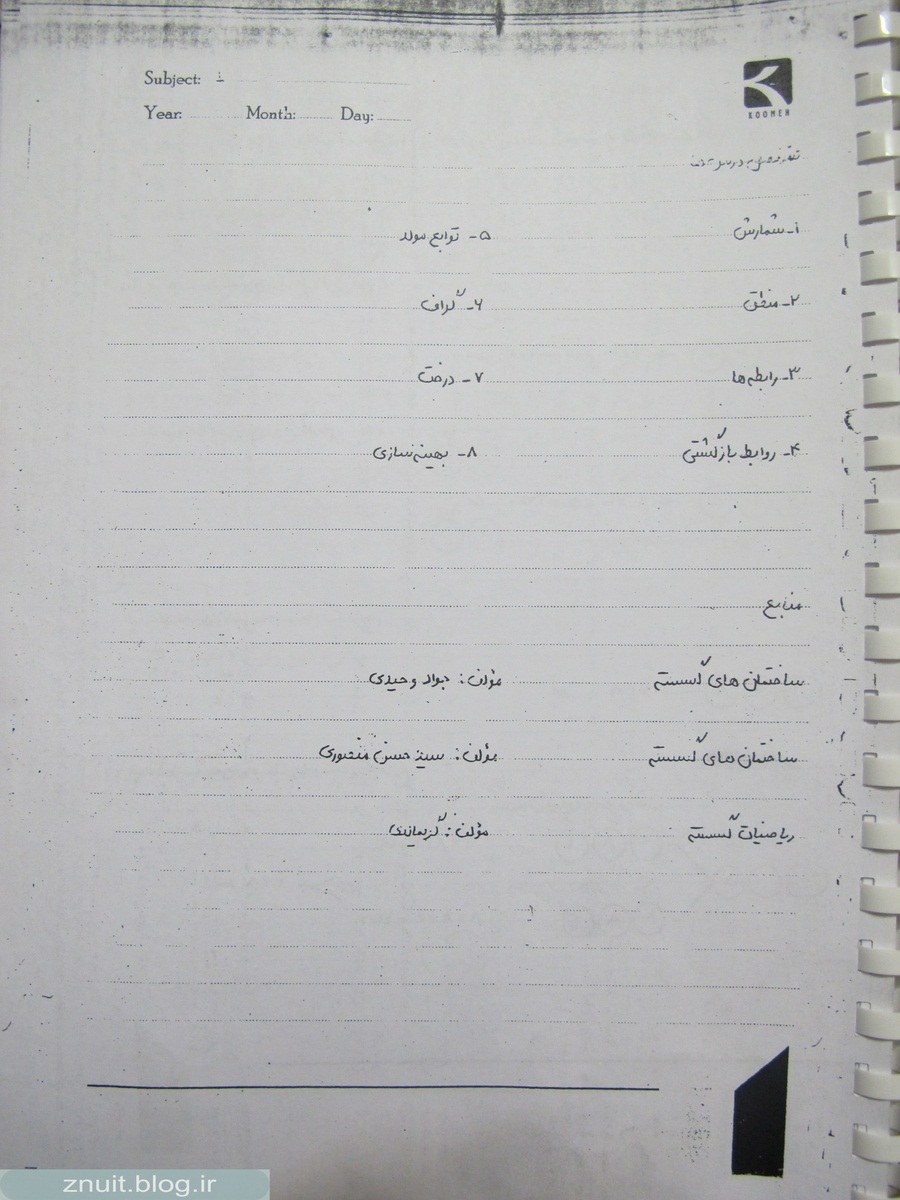 Subject:
Year: Month: Day:
KOOMEH
۱- شمارش
۵- توابع مولد
۲- منطق
۶- گراف
۳- رابطه ها
۷- درخت
۴- روابط بازگشتی
۸- بهینه سازی
منابع
ساختمان های گسسته مؤلف: جواد وحیدی
ساختمان های گسسته مؤلف: سید حسن منصوری
ریاضیات گسسته مؤلف:
znuit.blog.ir